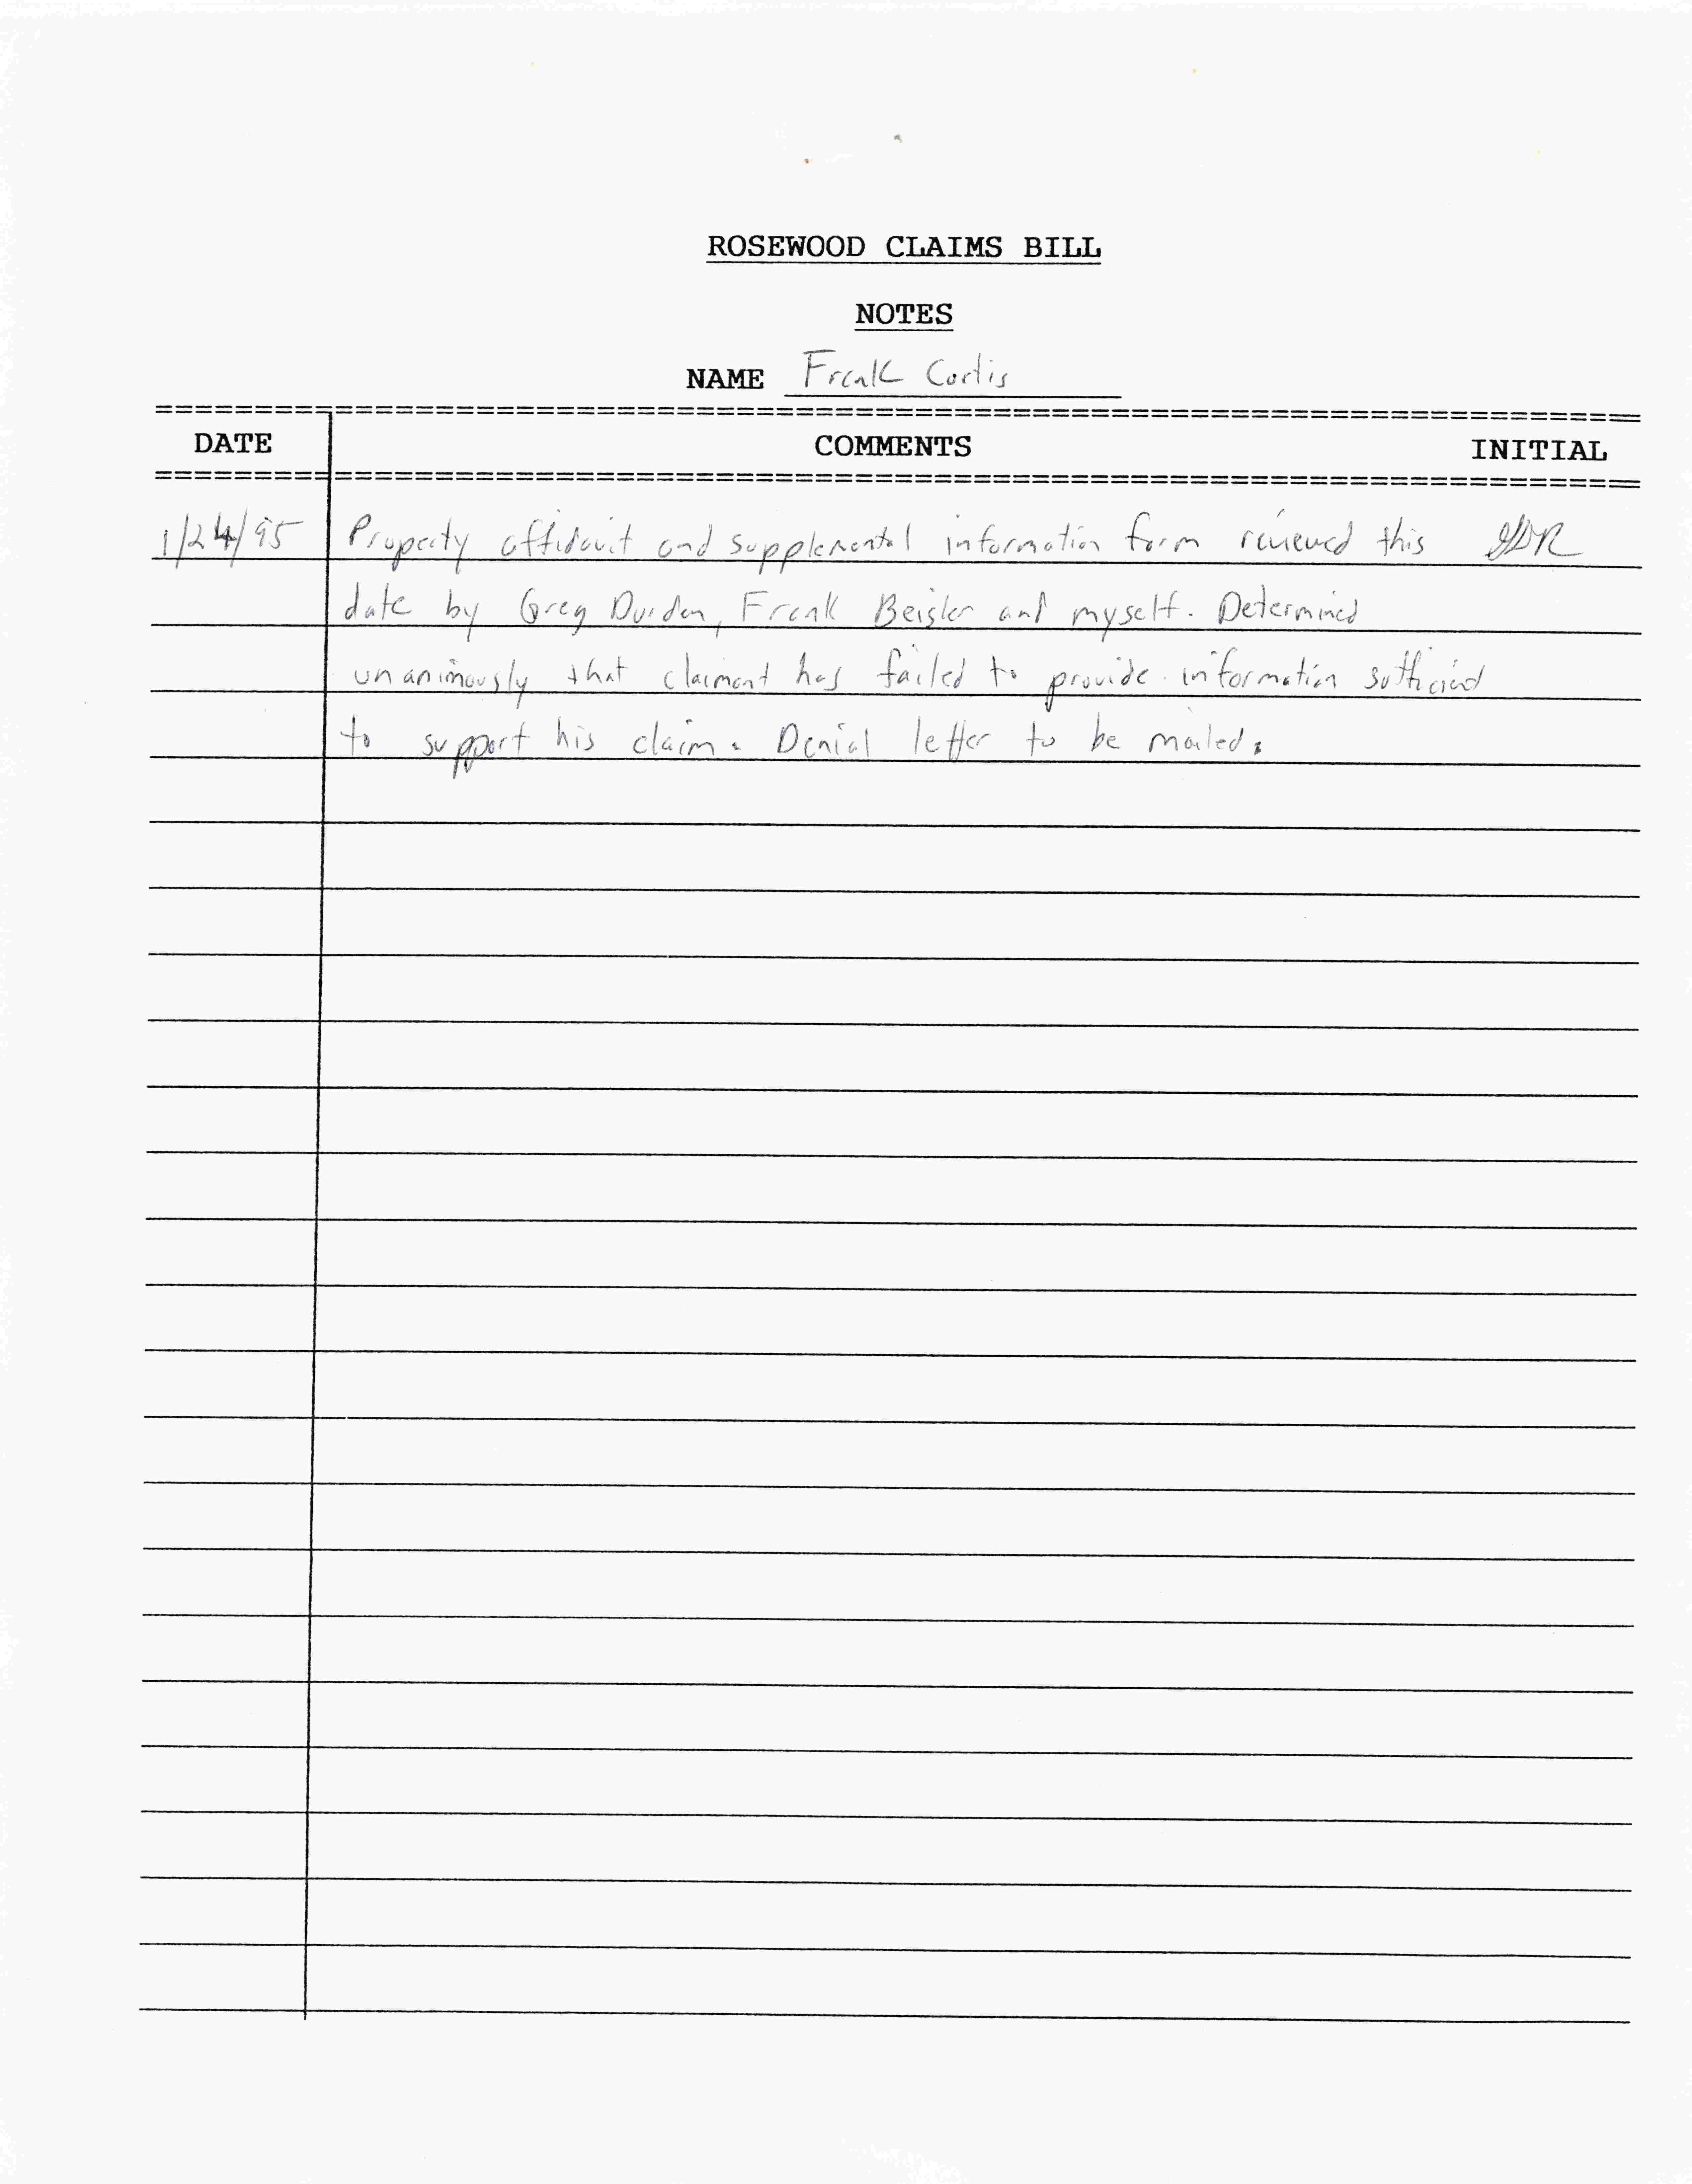 ROSEWOOD CLAIMS BILL
NOTES
NAME Frank Curtis
DATE COMMENTS INITIAL
1/24/95 Property affidavit and supplemental information form reviewed this
date by Greg Durden, Frank Beisler and myself. Determined
unanimously that claimant has failed to provide information sufficient
to support his claim. Denial letter to be mailed.